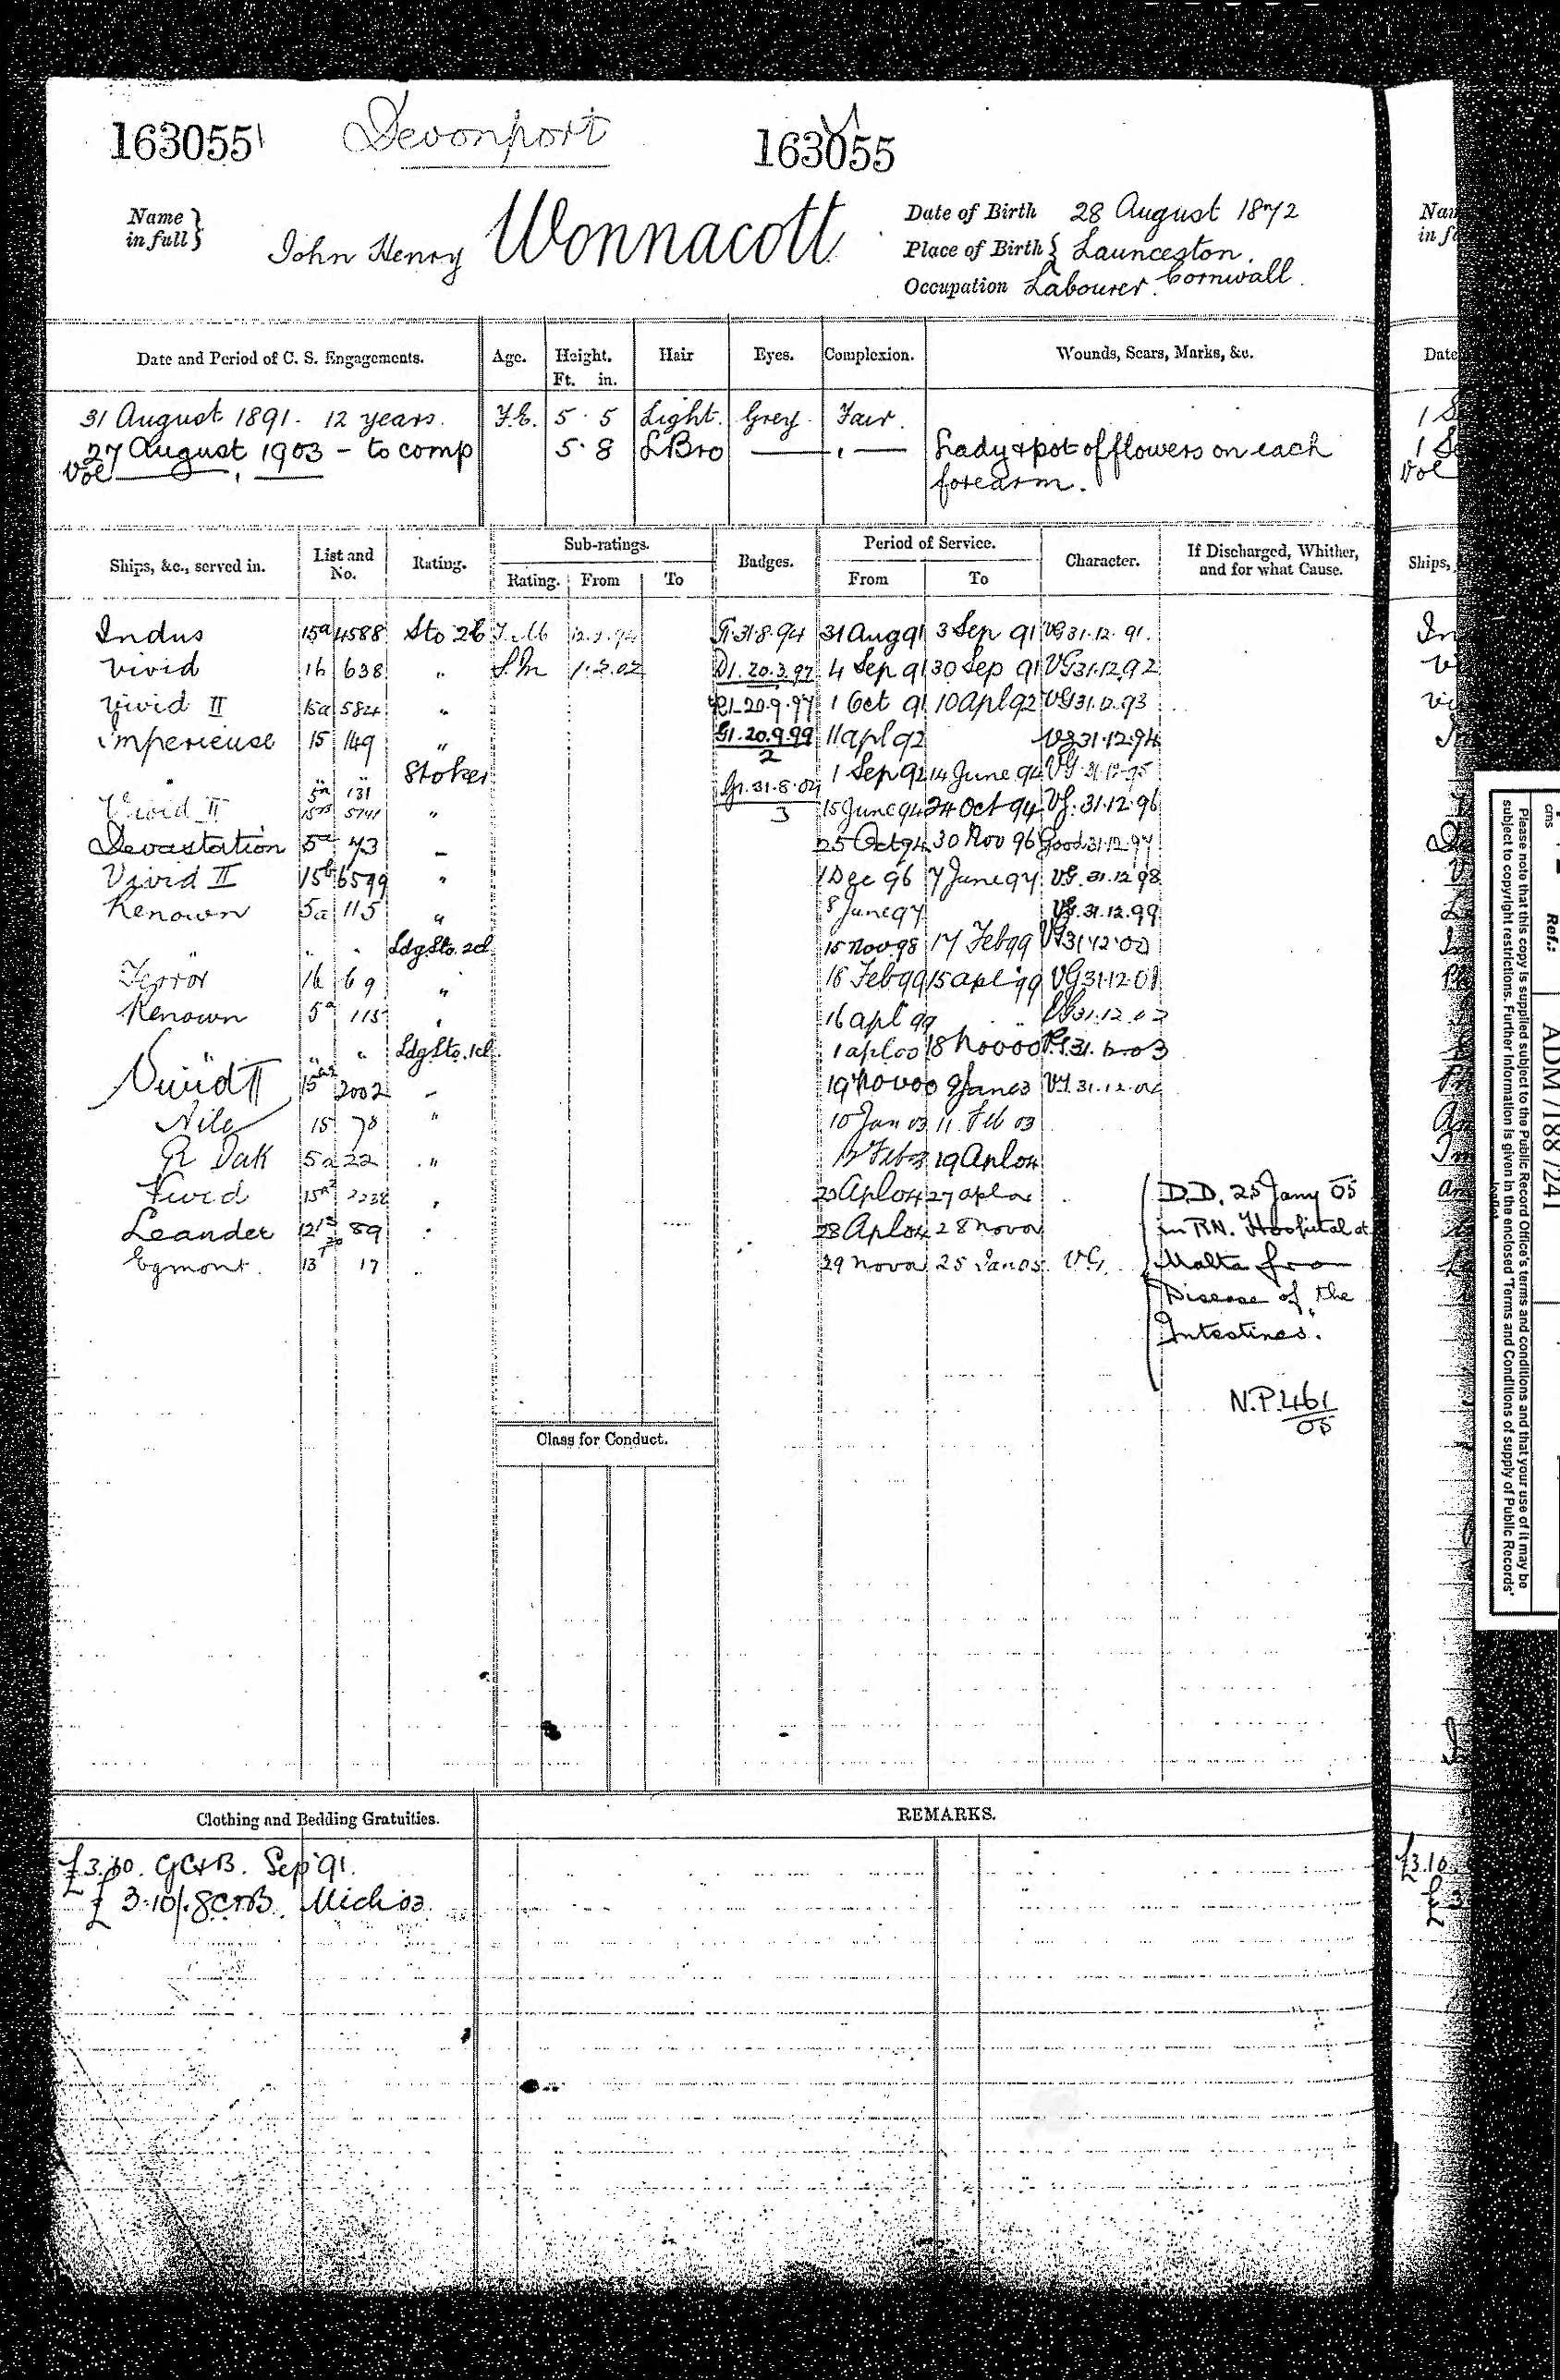 163055 Devonport 163055
Name in full } John Henry Wonnacott
Date of Birth 28 August 1872
Place of Birth } Launceston. Cornwall.
Occupation Labourer.
Date and Period of C. S. Engagements. Age. Height. Ft. in. Hair Eyes. Complexion. Wounds, Scars, Marks, &c.
31 August 1891. 12 years. 5 . 5 Light. Grey. Fair.
27 August 1903 - to comp 5 . 8 L Bro Lady & pot of flowers on each
Vol forearm.
Ships, &c., served in. List and No. Rating. Sub-ratings. Rating. From To Badges. Period of Service. From To Character. If Discharged, Whither, and for what Cause.
Indus 15a 4588 Sto 2c G1.31.8.94 31 Aug 91 3 Sep 91 VG 31.12.91.
Vivid 16 638 " S.M 1.2.02 D1.20.3.97 4 Sep 91 30 Sep 91 VG 31.12.92
Vivid II 15a 584 " R1.20.9.97 1 Oct 91 10 Apl 92 VG 31.12.93
Imperieuse 15 149 " G1.20.9.99 2 11 Apl 92 VG 31.12.94
" 5a 131 Stoker G1.31.8.04 3 1 Sep 92 14 June 94 VG 31.12.95
Vivid II 5741 " 15 June 94 24 Oct 94 VG. 31.12.96
Devastation 5a 73 25 Oct 94 30 Nov 96 Good 31.12.97
Vivid II 15b 6599 " 1 Dec 96 7 June 97 VG. 31.12.98
Renown 5a 115 " 8 June 97 VG. 31.12.99
" " " Ldg Sto. 2cl. 15 Nov. 98 17 Feb 99 VG 31.12.00
Terror 16 69 " 18 Feb 99 15 Apl 99 VG 31.12.01
Renown 5a 115 " 16 Apl 99 VG 31.12.02
" " " Ldg Sto. 1cl. 1 Apl 00 18 Nov 00 31.12.03
Vivid II 2002 19 Nov 00 9 Jan 03 VG 31.12.04
Nile 15 78 " 10 Jan 03 11 Feb 03
R Oak 5a 22 " 12 Feb 03 19 Apl 04
Vivid 15a2 20 Apl 04 27 Apl 04 D.D. 25 Jany 05
Leander 89 28 Apl 04 28 Nov 04 in RN. Hospital at
Egmont. 13 17 29 Nov 04 25 Jan 05 VG. Malta from
Disease of the
Intestines.
N.P.461
05
Class for Conduct.
Clothing and Bedding Gratuities. REMARKS.
£3.10. GC&B. Sep 91.
£3.10/. GC&B. Mich 03
Ref.: ADM/188/241
cms
Please note that this copy is supplied subject to the Public Record Office's terms and conditions and that your use of it may be
subject to copyright restrictions. Further information is given in the enclosed 'Terms and Conditions of supply of Public Records'
leaflet